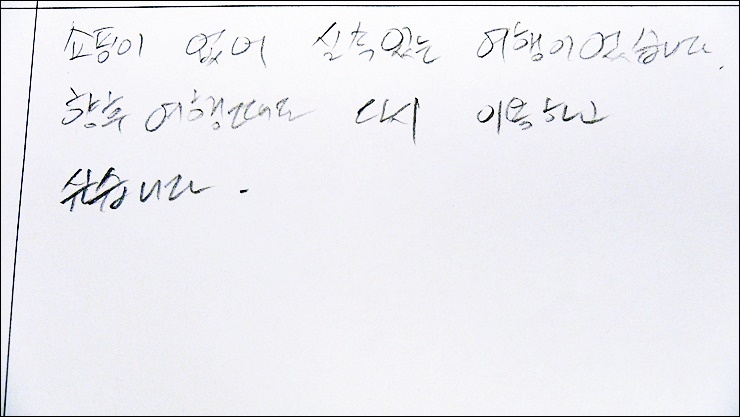 쇼핑이 없어 실속있는 여행이었습니다.
향후 여행때도 다시 이용하고
싶습니다.